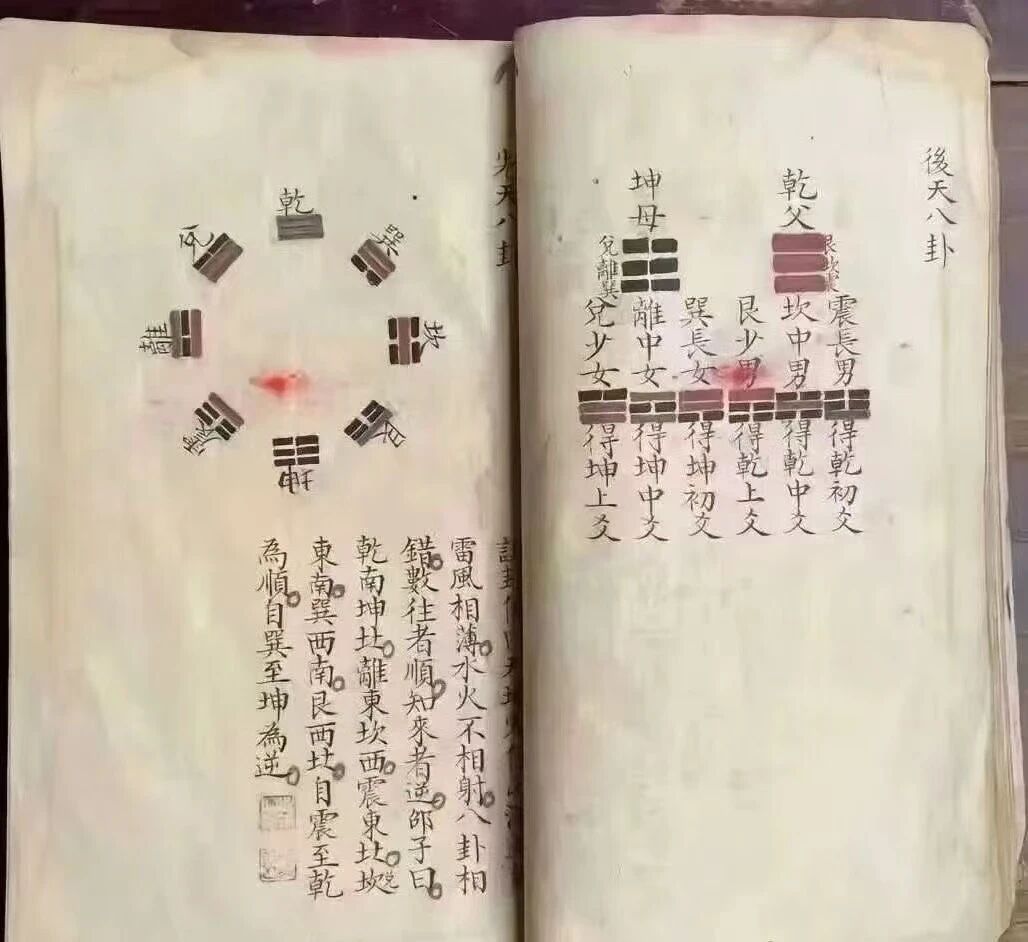 後天八卦
乾父
艮坎震
坤母
兌離巽
震長男
得乾初爻
坎中男
得乾中爻
艮少男
得乾上爻
巽長女
得坤初爻
離中女
得坤中爻
兌少女
得坤上爻
先天八卦
乾
兌
巽
離
坎
震
艮
坤
雷風相薄水火不相射八卦相
錯數往者順知來者逆邵子曰
乾南坤北離東坎西震東北坎兌
東南巽西南艮西北自震至乾
為順自巽至坤為逆